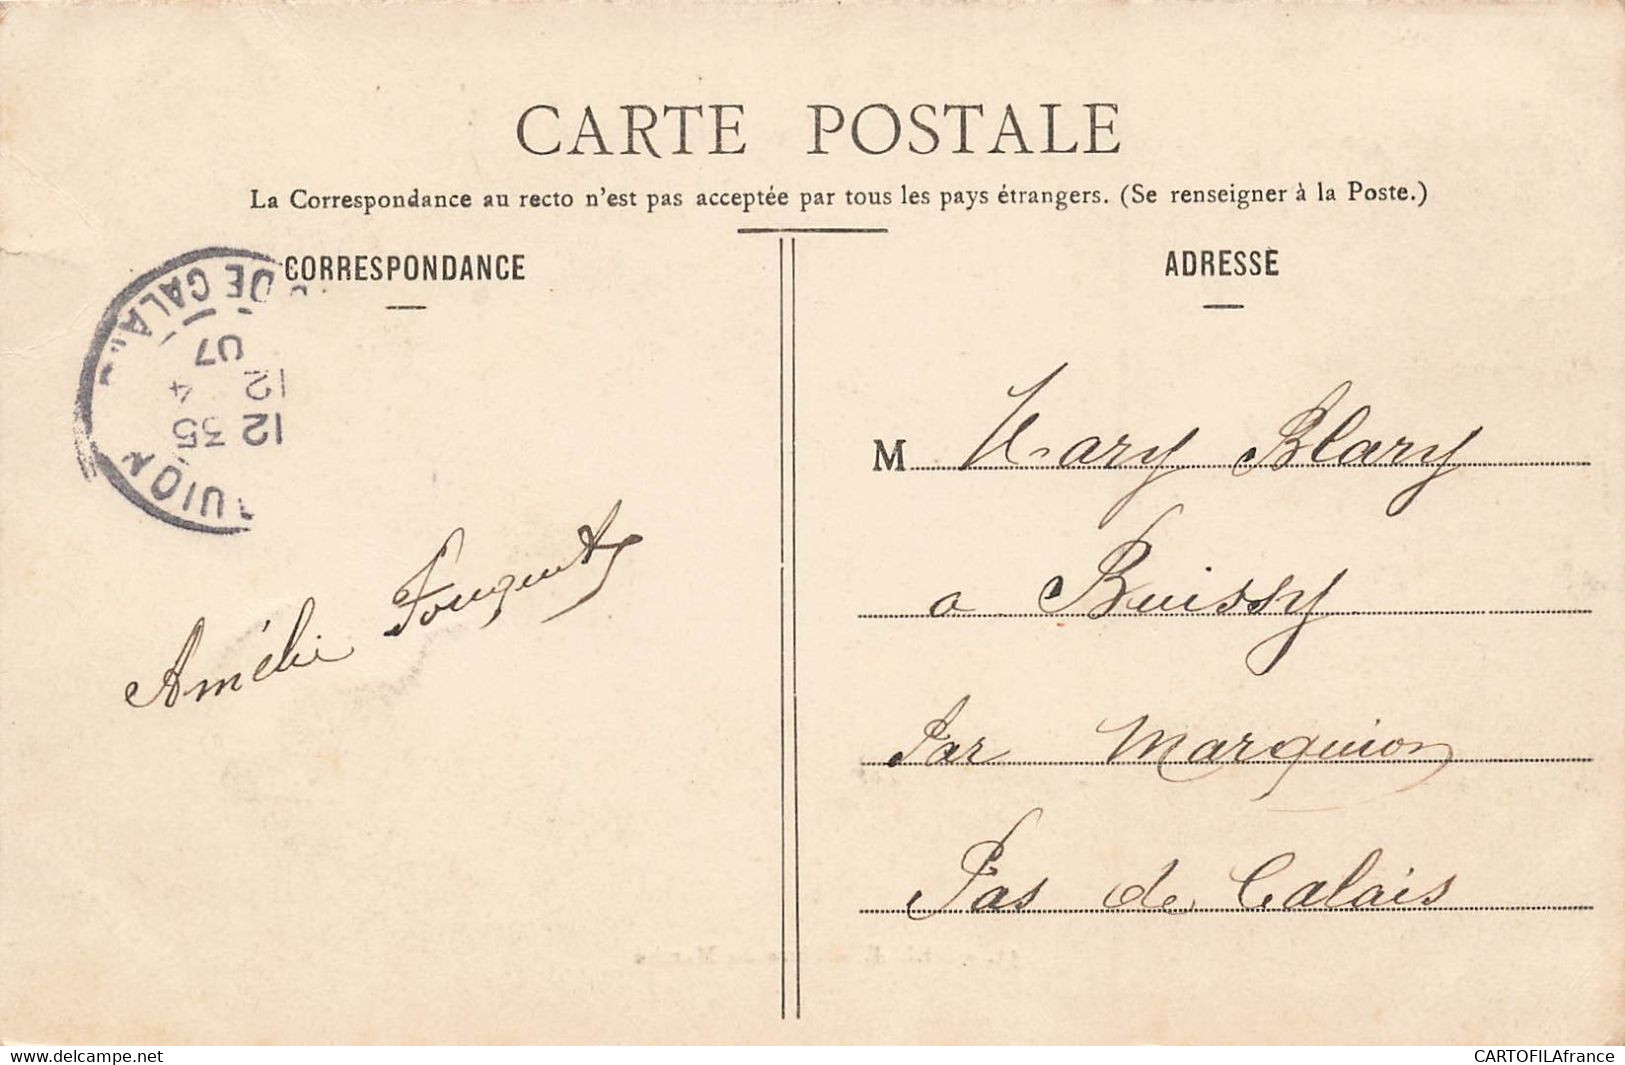 CARTE POSTALE
La Correspondance au recto n'est pas acceptée par tous les pays étrangers. (Se renseigner à la Poste.)
CORRESPONDANCE
DE CALA
07
12 4
12 35
UION
Amélie
ADRESSE
M Mary Blary
a Buissy
Par Marquion
Pas de Calais
www.delcampe.net
CARTOFILAfrance